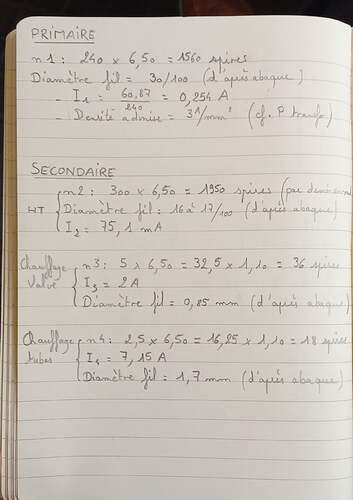 PRIMAIRE
n1 : 240 x 6,50 = 1560 spires
Diamètre fil = 30/100 (d'après abaque)
- I1 = 60,87/240 = 0,254 A
- Densité admise = 3A/mm² (cf. P transfo)
SECONDAIRE
HT
n2 : 300 x 6,50 = 1950 spires (par demi
Diamètre fil : 16 à 17/100 (d'après abaque)
I2 = 75,1 mA
Chauffage Valve
n3 : 5 x 6,50 = 32,5 x 1,10 = 36 spires
I3 = 2A
Diamètre fil = 0,85 mm (d'après abaque)
Chauffage tubes
n4 : 2,5 x 6,50 = 16,25 x 1,10 = 18 spires
I4 = 7,15 A
Diamètre fil = 1,7 mm (d'après abaque)